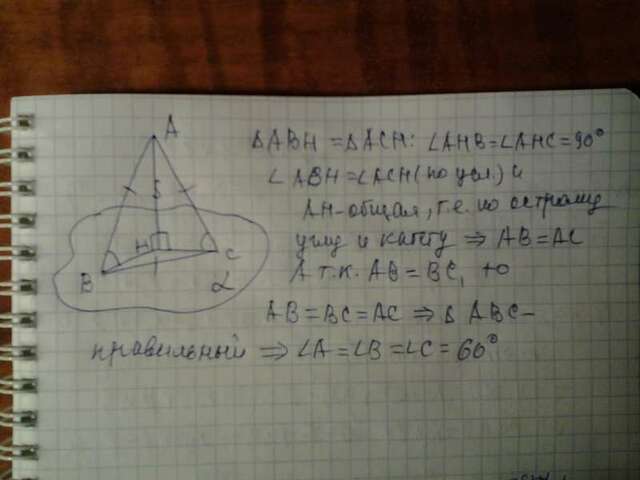 A
H
B
C
α
ΔABH = ΔACH: ∠AHB = ∠AHC = 90°
∠ABH = ∠ACH (по усл.) и
AH - общая, т.е. по острому
углу и катету ⇒ AB = AC
А т.к. AB = BC, то
AB = BC = AC ⇒ Δ ABC -
правильный ⇒ ∠A = ∠B = ∠C = 60°